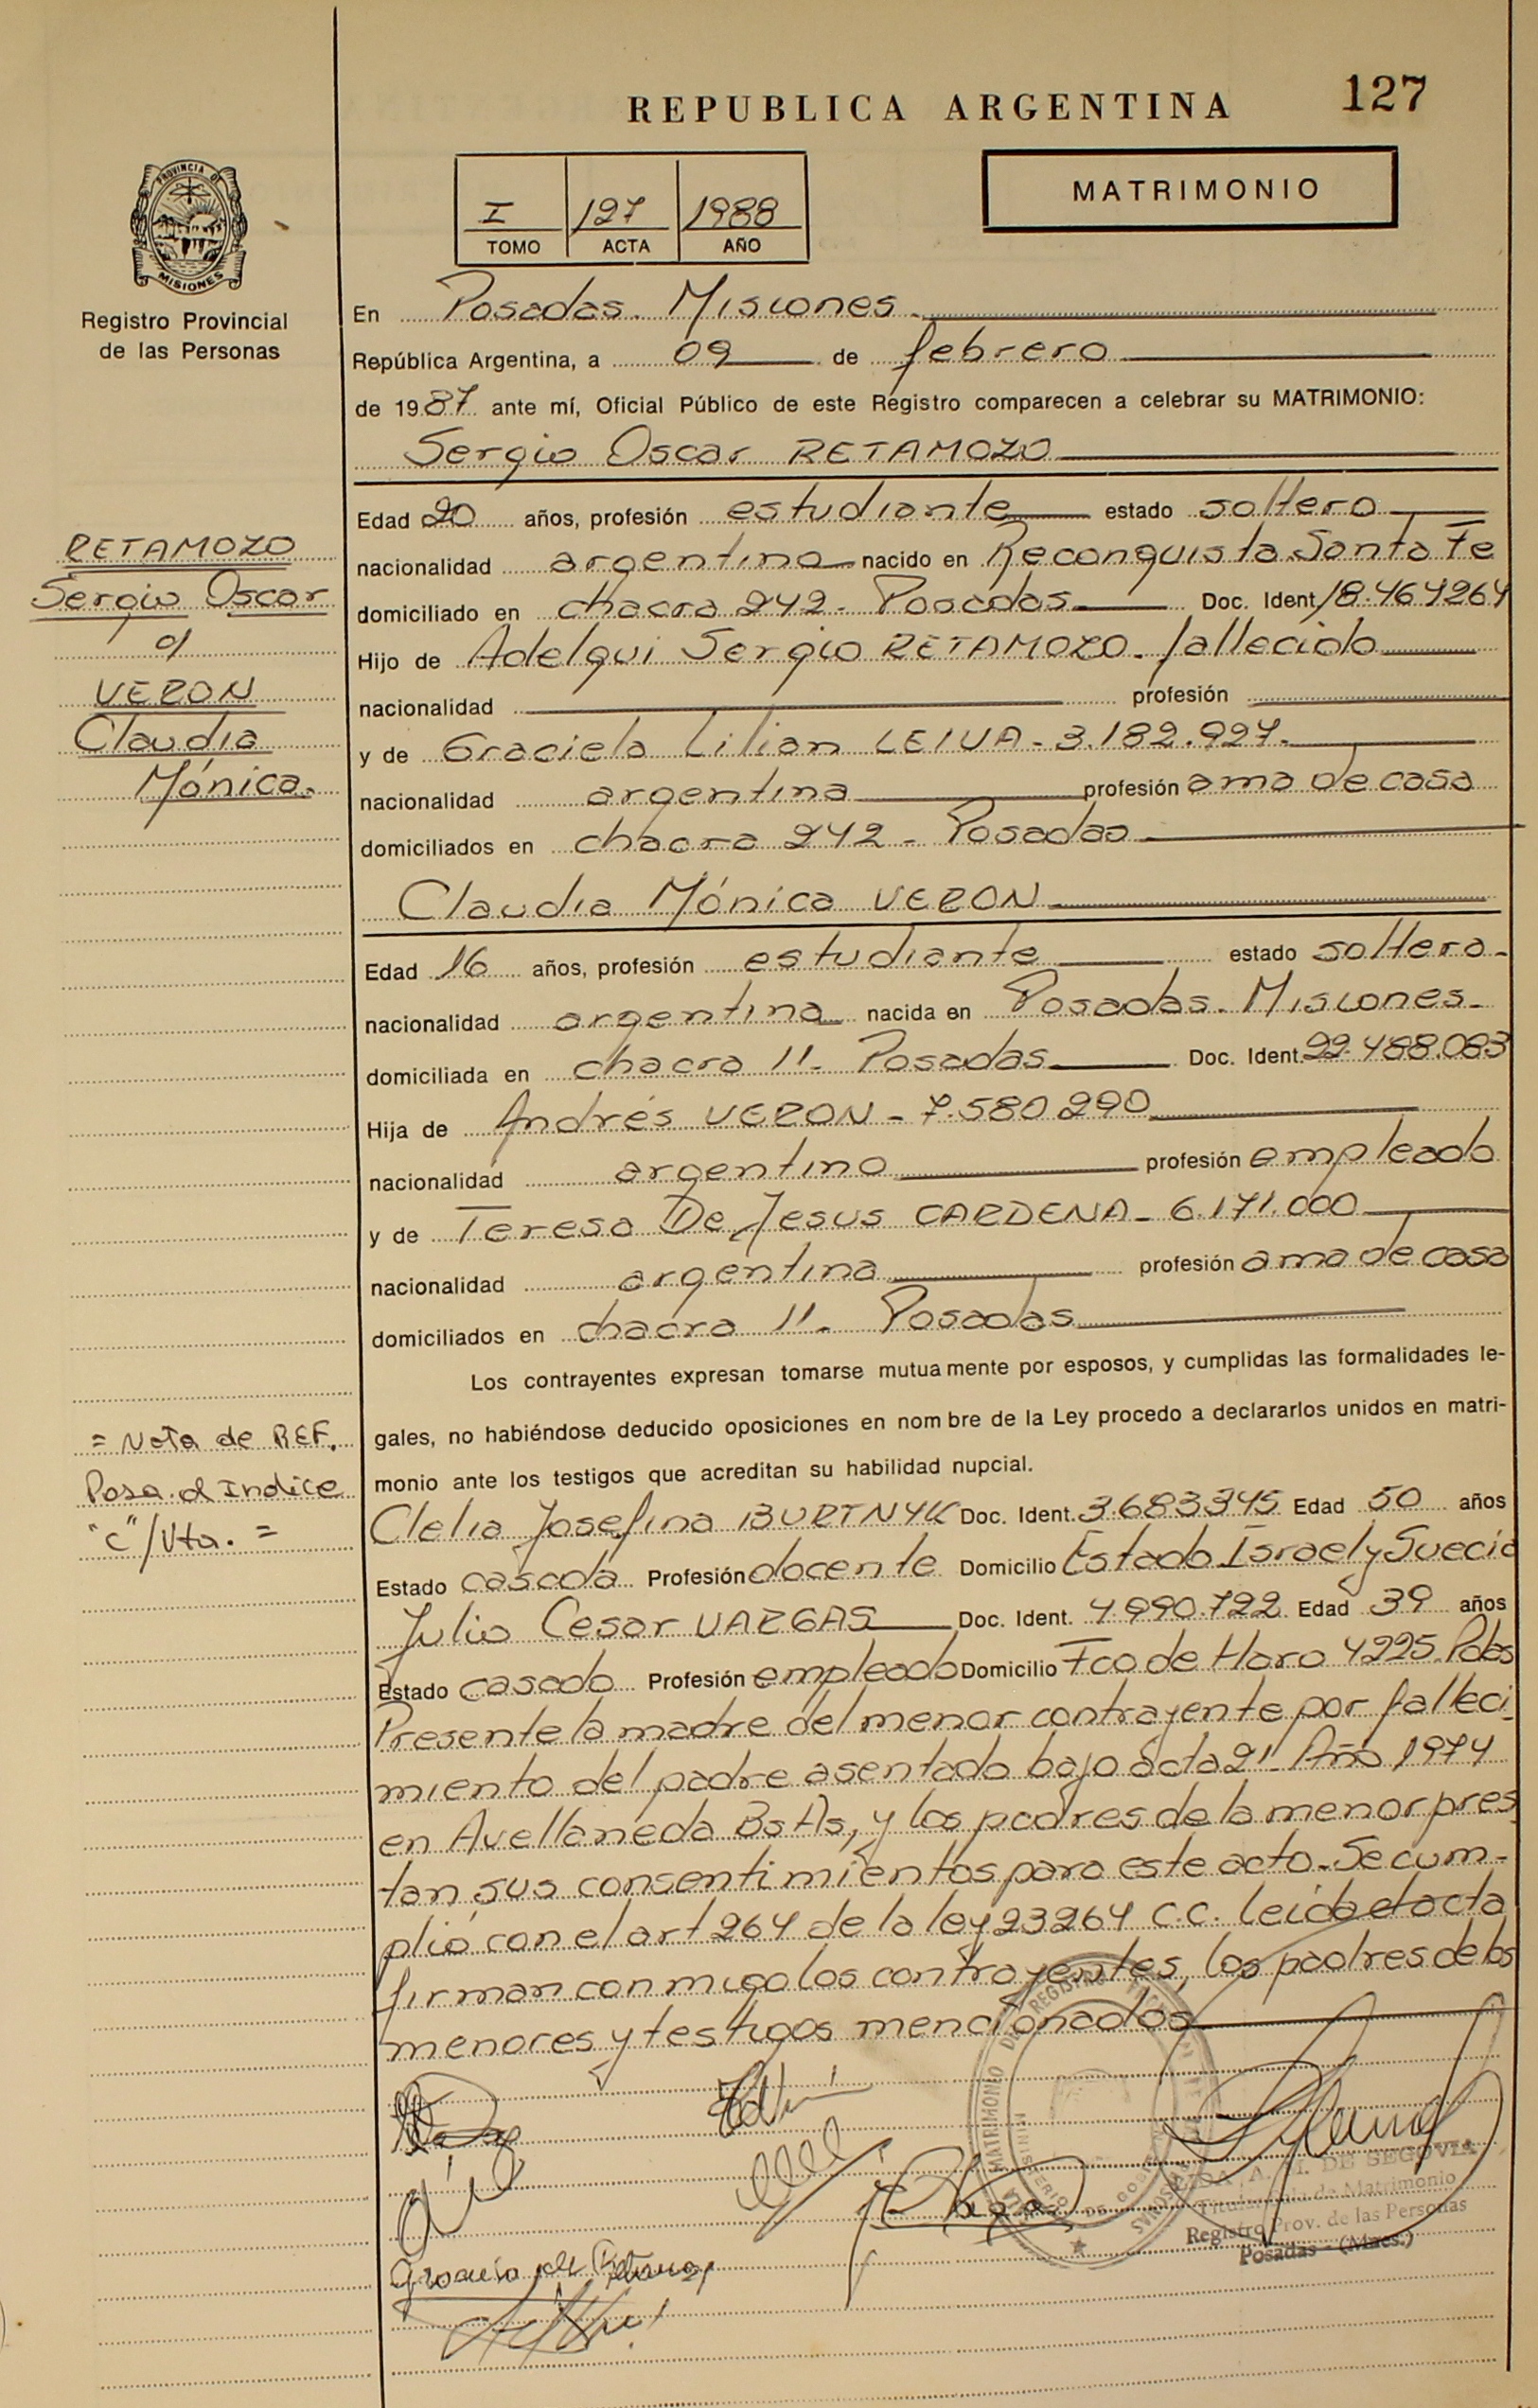 REPUBLICA ARGENTINA 127
MATRIMONIO
I 127 1988
TOMO ACTA AÑO
PROVINCIA DE
MISIONES
Registro Provincial
de las Personas
En Posadas. Misiones.
República Argentina, a 09 de febrero
de 1987 ante mí, Oficial Público de este Registro comparecen a celebrar su MATRIMONIO:
Sergio Oscar RETAMOZO
Edad 20 años, profesión estudiante estado soltero
nacionalidad argentino nacido en Reconquista Santa Fe
domiciliado en chacra 242- Posadas Doc. Ident. 18.464264
Hijo de Adelqui Sergio RETAMOZO- fallecido
nacionalidad profesión
y de Graciela Lilian LEIVA- 3.182.927-
nacionalidad argentina profesión ama de casa
domiciliados en chacra 242- Posadas
Claudia Mónica VERON
Edad 16 años, profesión estudiante estado soltera-
nacionalidad argentina nacida en Posadas- Misiones-
domiciliada en chacra 11- Posadas Doc. Ident. 22.488.083
Hija de Andrés VERON- 7.580290
nacionalidad argentino profesión empleado
y de Teresa De Jesus CARDENA- 6.171.000
nacionalidad argentina profesión ama de casa
domiciliados en chacra 11- Posadas
Los contrayentes expresan tomarse mutuamente por esposos, y cumplidas las formalidades le-
gales, no habiéndose deducido oposiciones en nombre de la Ley procedo a declararlos unidos en matri-
monio ante los testigos que acreditan su habilidad nupcial.
Clelia Josefina BURTNYK Doc. Ident. 3.683345 Edad 50 años
Estado casada Profesión docente Domicilio Estado Israel y Suecia
Julio Cesar VARGAS Doc. Ident. 4.990.722 Edad 39 años
Estado casado Profesión empleado Domicilio Fco de Haro 4225. Pdas
Presente la madre del menor contrayente por falleci-
miento del padre asentado bajo acta 21- Año 1974
en Avellaneda Bs As, y los padres de la menor pres
tan sus consentimientos para este acto. Se cum-
plió con el art 264 de la ley 23264 C.C. leída el acta
firman conmigo los contrayentes, los padres de los
menores y testigos mencionados
RETAMOZO
Sergio Oscar
c/
VERON
Claudia
Mónica.
= Nota de REF.
Pasa al Indice
"C"/Vta. =
A. H. DE SEGOVIA
Titular Ofic. de Matrimonio
Registro Prov. de las Personas
Posadas - (Mnes.)